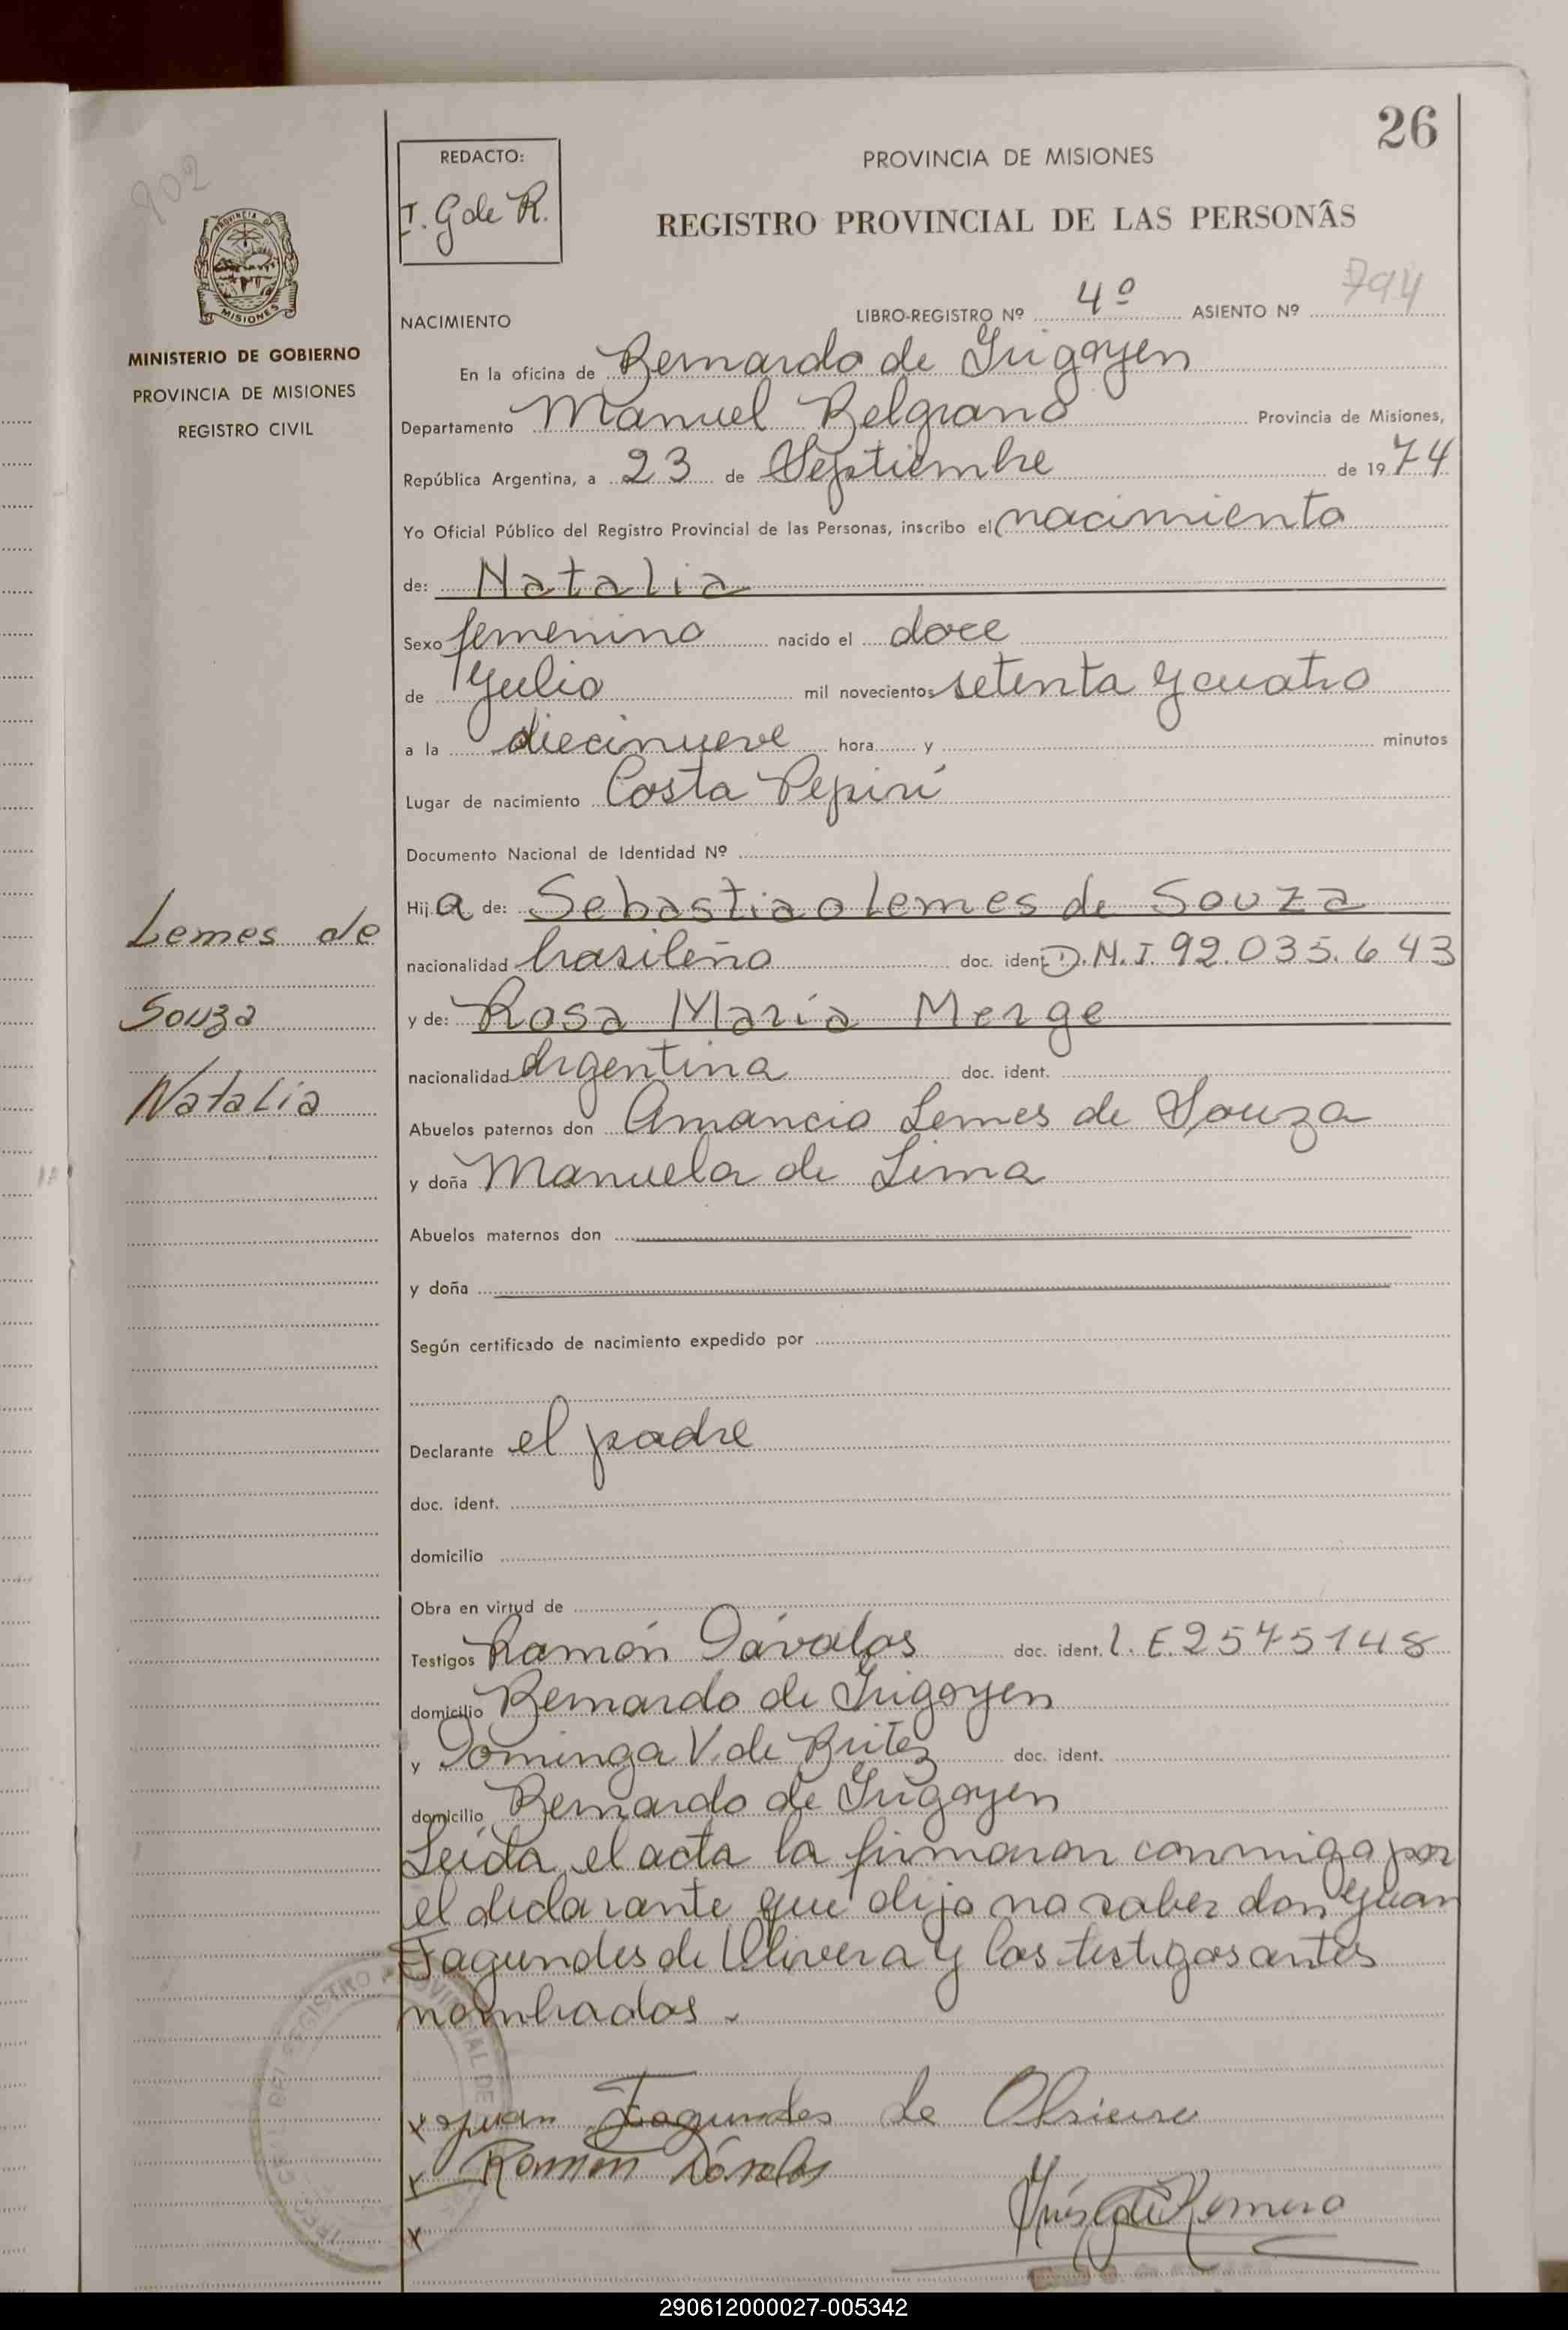 26
902
REDACTO:
I. G de R.
PROVINCIA DE MISIONES
REGISTRO PROVINCIAL DE LAS PERSONAS
PROVINCIA DE
MISIONES
MINISTERIO DE GOBIERNO
PROVINCIA DE MISIONES
REGISTRO CIVIL
NACIMIENTO LIBRO-REGISTRO Nº 4º ASIENTO Nº 794
En la oficina de Bernardo de Irigoyen
Departamento Manuel Belgrano Provincia de Misiones,
República Argentina, a 23 de Septiembre de 1974
Yo Oficial Público del Registro Provincial de las Personas, inscribo el nacimiento
de: Natalia
Sexo femenino nacido el doce
de Julio mil novecientos setenta y cuatro
a la diecinueve hora y minutos
Lugar de nacimiento Costa Pepirí
Documento Nacional de Identidad Nº
Hija de: Sebastiao Lemes de Souza
Lemes de
nacionalidad brasileño doc. ident. D.N.I. 92.035.643
Souza
y de: Rosa María Merge
nacionalidad Argentina doc. ident.
Natalia
Abuelos paternos don Amancio Lemes de Souza
y doña Manuela de Lima
Abuelos maternos don
y doña
Según certificado de nacimiento expedido por
Declarante el padre
doc. ident.
domicilio
Obra en virtud de
Testigos Ramón Dávalos doc. ident. L.E. 2575148
domicilio Bernardo de Irigoyen
y Dominga V. de Britez doc. ident.
domicilio Bernardo de Irigoyen
Leída el acta la firmaron conmigo por
el declarante que dijo no saber don Juan
Fagundes de Olivera y los testigos antes
nombrados.
x Juan Fagundes de Oliveira
x Ramon Dávalos
Inés G de Romero
x
REGISTRO PROVINCIAL DE
290612000027-005342